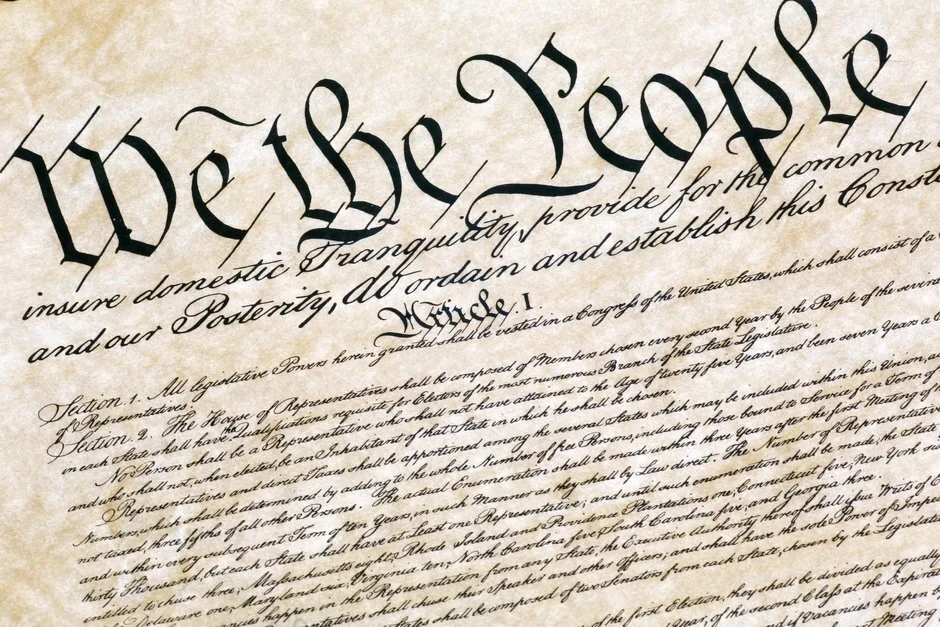 We the People
insure domestic Tranquility, provide for the common
and our Posterity, do ordain and establish this Const
Article. I.
Section. 1. All legislative Powers herein granted shall be vested in a Congress of the United States, which shall consist of a
of Representatives.
Section. 2. The House of Representatives shall be composed of Members chosen every second Year by the People of the several
in each State shall have the Qualifications requisite for Electors of the most numerous Branch of the State Legislature.
No Person shall be a Representative who shall not have attained to the Age of twenty five Years, and been seven Years a
and who shall not, when elected, be an Inhabitant of that State in which he shall be chosen.
Representatives and direct Taxes shall be apportioned among the several States which may be included within this Union,
Numbers, which shall be determined by adding to the whole Number of free Persons, including those bound to Service for a Term of
not taxed, three fifths of all other Persons. The actual Enumeration shall be made within three Years after the first Meeting of
and within every subsequent Term of ten Years, in such Manner as they shall by Law direct. The Number of Representatives
thirty Thousand, but each State shall have at Least one Representative; and until such enumeration shall be made, the State
entitled to chuse three, Massachusetts eight, Rhode Island and Providence Plantations one, Connecticut five, New York six
Delaware one, Maryland six, Virginia ten, North Carolina five, South Carolina five, and Georgia three.
happen in the Representation from any State, the Executive Authority thereof shall issue Writs of
shall chuse their Speaker and other Officers; and shall have the sole Power of
States shall be composed of two Senators from each State, chosen by the Legislature
of the first Election, they shall be divided as equally
Year, of the second Class at the Expiration
of Vacancies happen by
Meeting